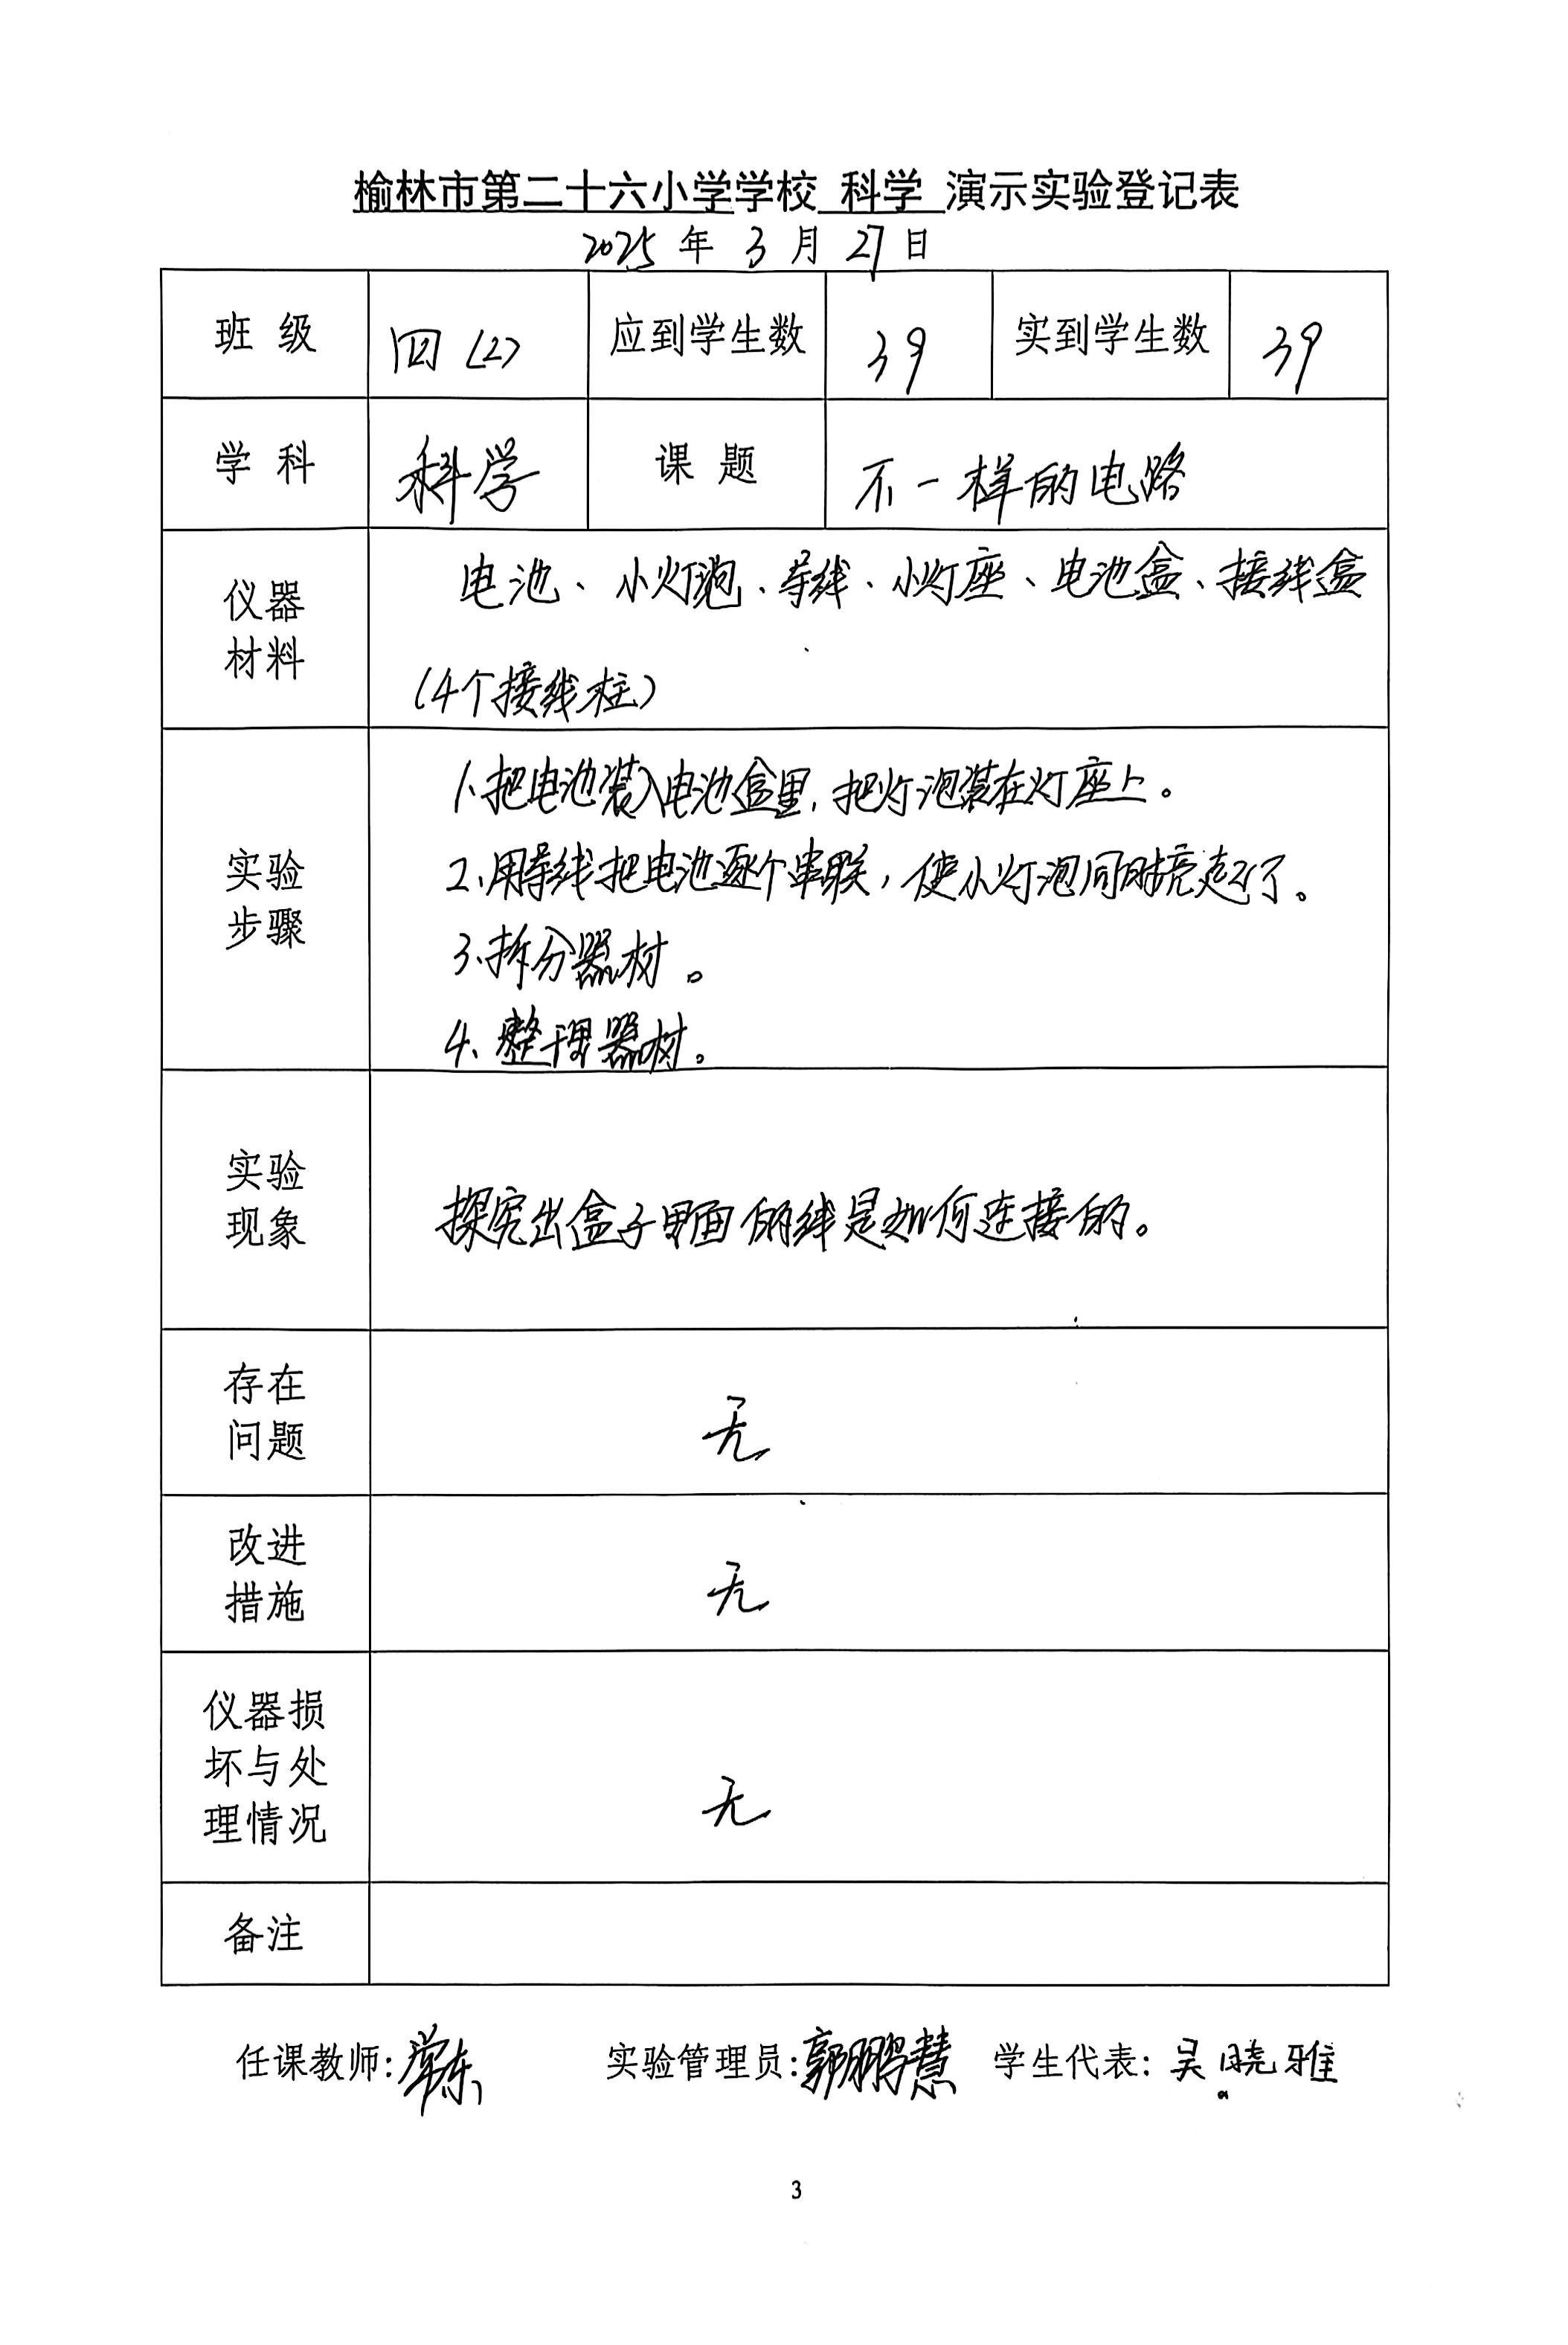 榆林市第二十六小学学校 科学 演示实验登记表
2025 年 3 月 27 日
班 级 四(2) 应到学生数 39 实到学生数 39
学 科 科学 课 题 不一样的电路
仪器
材料
电池、小灯泡、导线、小灯座、电池盒、接线盒
(4个接线柱)
实验
步骤
1.把电池装入电池盒里,把灯泡装在灯座上。
2、用导线把电池逐个串联,使小灯泡同时亮起了。
3、拆分器材。
4、整理器材。
实验
现象
探究出盒子里面的线是如何连接的。
存在
问题
无
改进
措施
无
仪器损
坏与处
理情况
无
备注
任课教师: 实验管理员:郭鹏慧 学生代表:吴晓雅
3